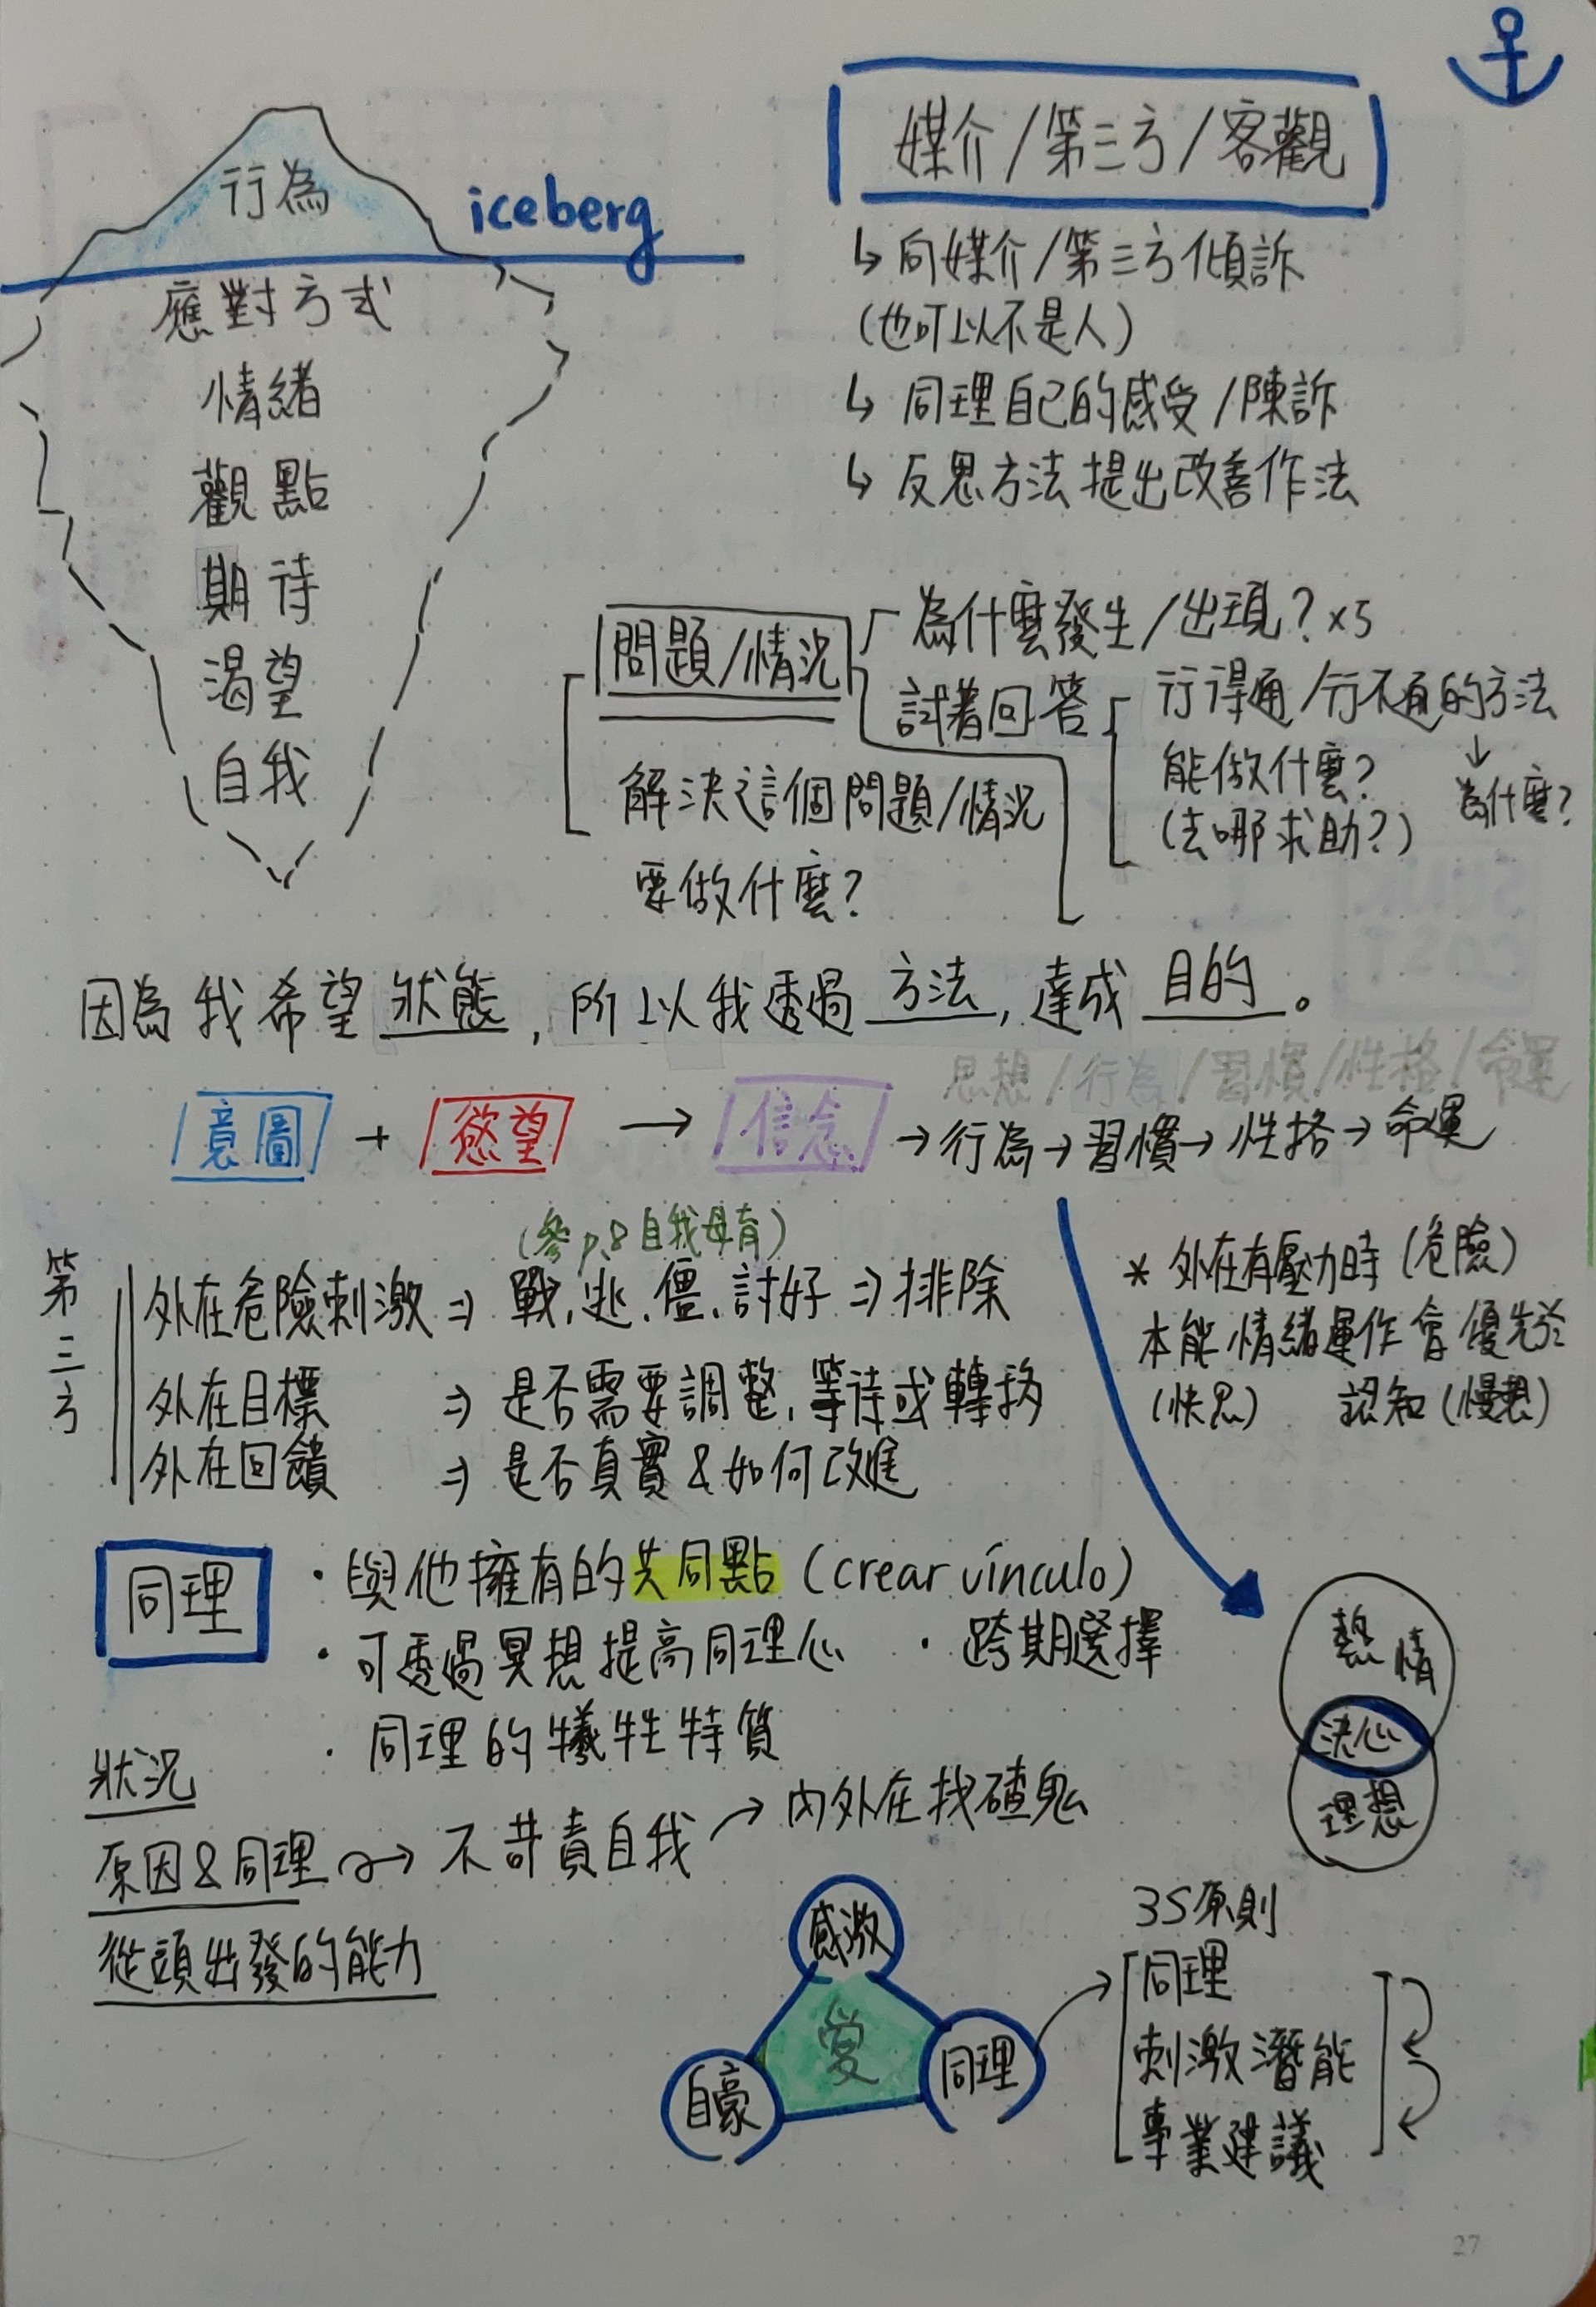 行為
iceberg
應對方式
情緒
觀點
期待
渴望
自我
媒介/第三方/客觀
↳ 向媒介/第三方傾訴
(也可以不是人)
↳ 同理自己的感受/陳訴
↳ 反思方法提出改善作法
問題/情況
為什麼發生/出現?x5
試著回答
行得通/行不通的方法
↓
為什麼?
能做什麼?
(去哪求助?)
解決這個問題/情況
要做什麼?
因為我希望狀態,所以我透過方法,達成目的。
思想/行為/習慣/性格/命運
意圖 + 慾望 → 信念 → 行為 → 習慣 → 性格 → 命運
(參p.8自我母育)
第三方
外在危險刺激 ⇒ 戰.逃.僵.討好 ⇒ 排除
外在目標 ⇒ 是否需要調整,等待或轉移
外在回饋 ⇒ 是否真實&如何改進
* 外在有壓力時(危險)
本能情緒運作會優先於
(快思) 認知(慢想)
同理
·與他擁有的共同點(crear vínculo)
·可透過冥想提高同理心 ·跨期選擇
·同理的犧牲特質
熱情
決心
理想
狀況
原因&同理 → 不苛責自我 → 內外在找碴鬼
從頭出發的能力
感激
愛
自豪
同理
3S原則
同理
刺激潛能
專業建議
27